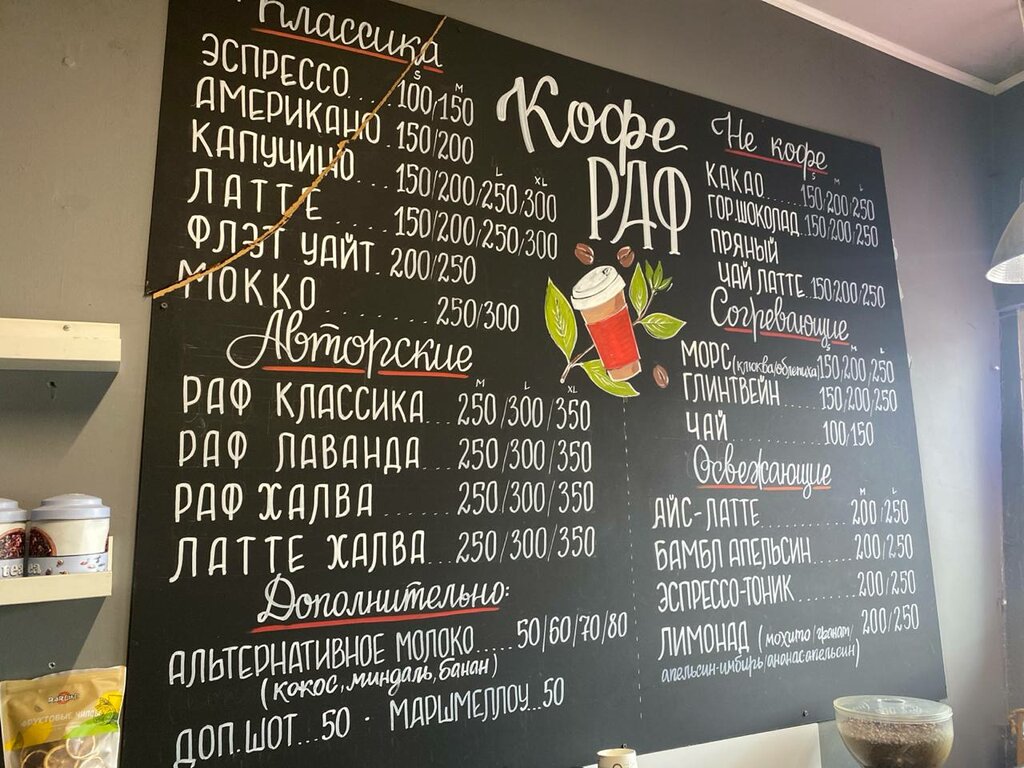 Классика
S M
ЭСПРЕССО....100/150
АМЕРИКАНО 150/200
L XL
КАПУЧИНО....150/200/250/300
ЛАТТЕ.......150/200/250/300
ФЛЭТ УАЙТ..200/250
МОККО........250/300
Авторские
M L XL
РАФ КЛАССИКА 250/300/350
РАФ ЛАВАНДА...250/300/350
РАФ ХАЛВА.......250/300/350
ЛАТТЕ ХАЛВА...250/300/350
Дополнительно:
АЛЬТЕРНАТИВНОЕ МОЛОКО.....50/60/70/80
(кокос, миндаль, банан)
ДОП.ШОТ...50 · МАРШМЕЛЛОУ...50
Кофе
РАФ
Не кофе
S M L
КАКАО.....150/200/250
ГОР.ШОКОЛАД..150/200/250
ПРЯНЫЙ
ЧАЙ ЛАТТЕ..150/200/250
Согревающие
S M L
МОРС(клюква/облепиха)150/200/250
ГЛИНТВЕЙН.....150/200/250
ЧАЙ 100/150
Освежающие
M L
АЙС-ЛАТТЕ...........200/250
БАМБЛ АПЕЛЬСИН.....200/250
ЭСПРЕССО-ТОНИК.......200/250
ЛИМОНАД (мохито/гранат/ 200/250
апельсин-имбирь/ананас апельсин)
ФРУКТОВЫЕ ЧИПСЫ